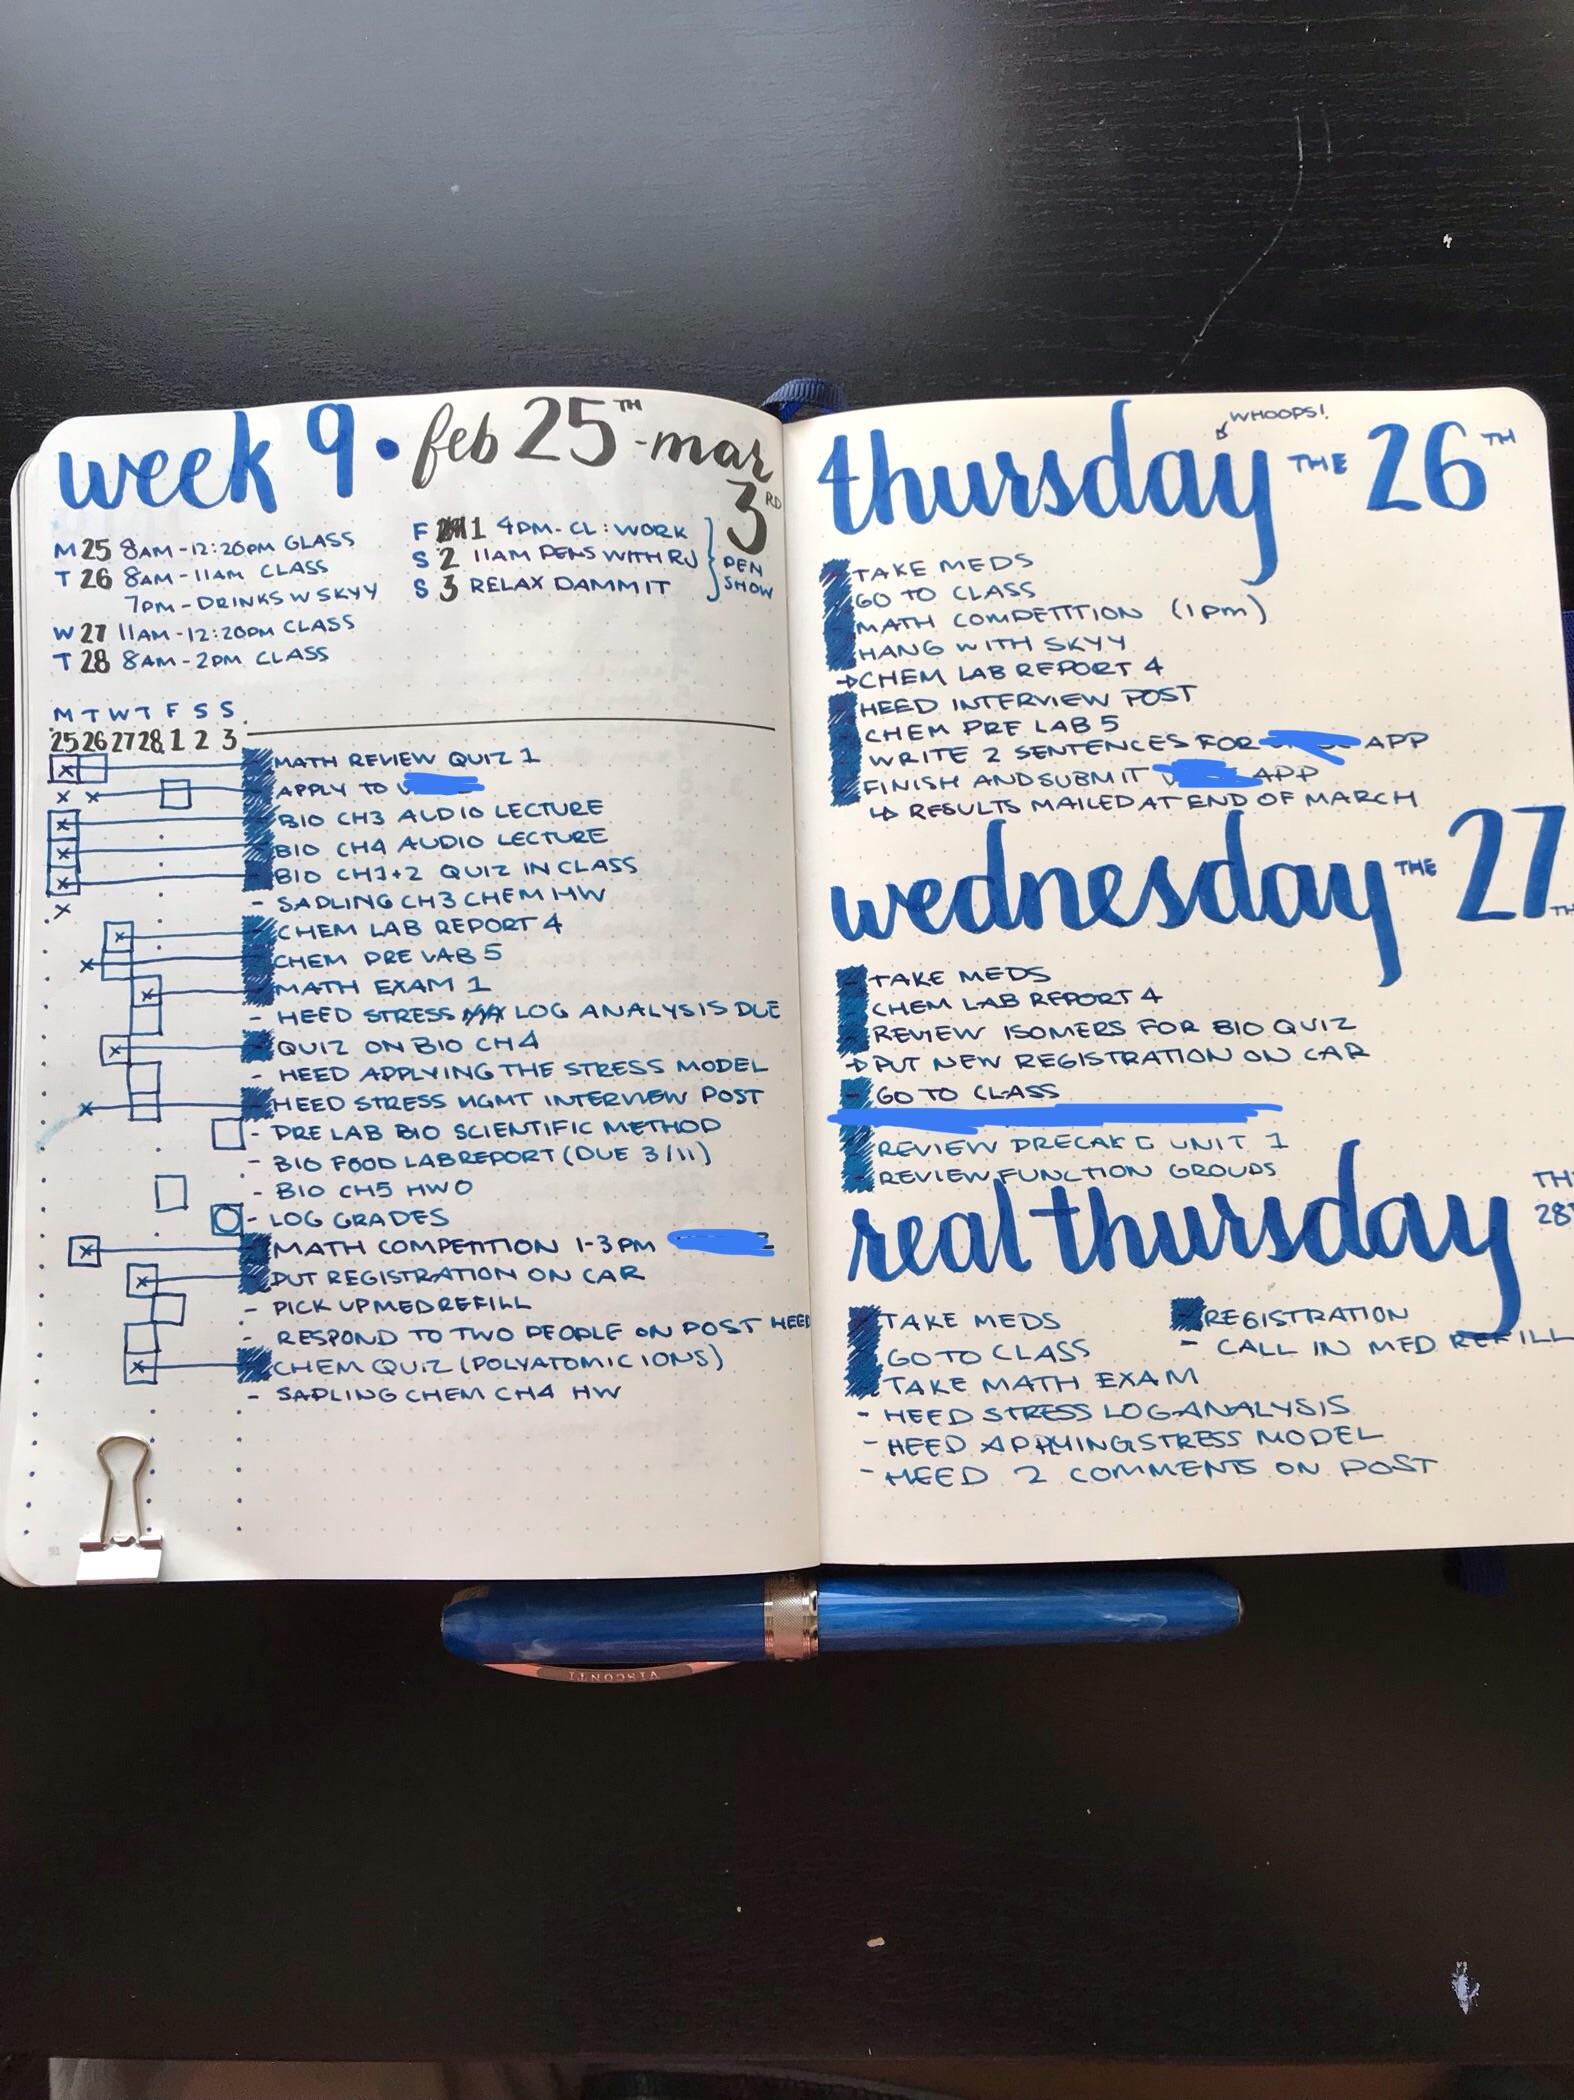 week 9 • feb 25TH - mar 3RD
M 25 8AM-12:20PM CLASS
T 26 8AM-11AM CLASS
7PM-DRINKS W SKYY
W 27 11AM-12:20PM CLASS
T 28 8AM-2PM CLASS
F 1 4PM-CL: WORK
S 2 11AM PENS WITH RJ
S 3 RELAX DAMMIT
} PEN SHOW
M T W T F S S
25 26 27 28 1 2 3
MATH REVIEW QUIZ 1
APPLY TO
BIO CH3 AUDIO LECTURE
BIO CH4 AUDIO LECTURE
BIO CH1+2 QUIZ IN CLASS
- SAPLING CH3 CHEM HW
CHEM LAB REPORT 4
CHEM PRE LAB 5
MATH EXAM 1
- HEED STRESS LOG ANALYSIS DUE
QUIZ ON BIO CH4
- HEED APPLYING THE STRESS MODEL
HEED STRESS MGMT INTERVIEW POST
- PRE LAB BIO SCIENTIFIC METHOD
- BIO FOOD LAB REPORT (DUE 3/11)
- BIO CH5 HWO
- LOG GRADES
MATH COMPETITION 1-3PM
PUT REGISTRATION ON CAR
- PICK UP MED REFILL
- RESPOND TO TWO PEOPLE ON POST HEED
CHEM QUIZ (POLYATOMIC IONS)
- SAPLING CHEM CH4 HW
51
WHOOPS!
thursday THE 26TH
TAKE MEDS
GO TO CLASS
MATH COMPETITION (1pm)
HANG WITH SKYY
→CHEM LAB REPORT 4
HEED INTERVIEW POST
CHEM PRE LAB 5
WRITE 2 SENTENCES FOR APP
FINISH AND SUBMIT APP
↳ RESULTS MAILED AT END OF MARCH
wednesday THE 27TH
TAKE MEDS
CHEM LAB REPORT 4
REVIEW ISOMERS FOR BIO QUIZ
→PUT NEW REGISTRATION ON CAR
- GO TO CLASS
REVIEW PRECALC UNIT 1
REVIEW FUNCTION GROUPS
real thursday THE 28T
TAKE MEDS
GO TO CLASS
TAKE MATH EXAM
- HEED STRESS LOG ANALYSIS
- HEED APPLYING STRESS MODEL
- HEED 2 COMMENTS ON POST
REGISTRATION
- CALL IN MED REFILL
VISCONTI